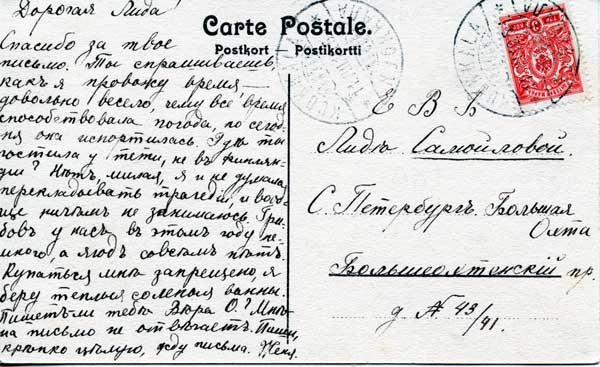 Carte Postale.
Postkort — Postikortti
Дорогая Лида!
Спасибо за твое
письмо. Ты спрашиваешь
какъ я провожу время
довольно весело, чему все время
способствовала погода, но сегод-
ня она испортилась. Гдѣ ты
гостила у тети, не въ Финлян-
діи? Нѣтъ, милая, я и не думала
перекладывать трагедіи, и вооб-
ще ничѣмъ не занимаюсь. Гри-
бовъ у насъ въ этомъ году не-
много, а ягодъ совсѣмъ нѣтъ.
Купаться мнѣ запрещено, я
беру теплыя соленыя ванны.
Пишетъ ли тебѣ Вѣра О.? Мнѣ
на письмо не отвѣчаетъ. Пиши,
крѣпко цѣлую, жду письма. Женя.
Е В Б
Лидіи Самойловой.
С. Петербургъ. Большая
Охта
Большеохтенскій пр.
д № 43/41.